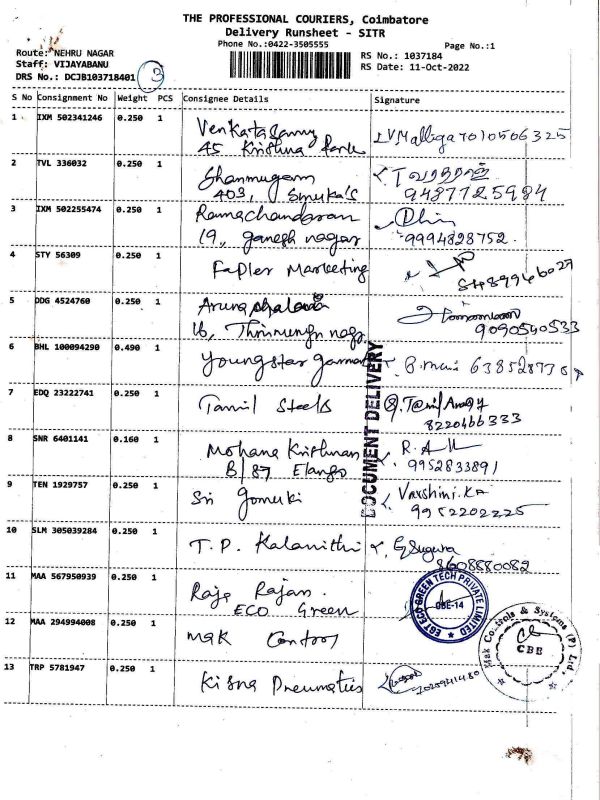 THE PROFESSIONAL COURIERS, Coimbatore
Delivery Runsheet - SITR
Phone No.:0422-3505555
Page No.:1
Route: NEHRU NAGAR
RS No.: 1037184
Staff: VIJAYABANU
RS Date: 11-Oct-2022
DRS No.: DCJB103718401
3
S No Consignment No Weight PCS Consignee Details Signature
1 IXM 502341246 0.250 1 Venkatasamy
45 Krishna Park
7010506325
2 TVL 336032 0.250 1 Shanmugam
403,
வரதராஜ்
9487725984
3 IXM 502255474 0.250 1 Ramachandaran
19, ganesh nagar
9994828752.
4 STY 56309 0.250 1 Marketing
5 DDG 4524760 0.250 1
16,
9090540533
6 BHL 100094290 0.490 1 Youngstar
B.mani 638528738
7 EDQ 23222741 0.250 1 Tamil Steels
8220466333
8 SNR 6401141 0.160 1 Mohana Krishnan
B/87 Elango
9952833891
9 TEN 1929757 0.250 1 Sri Gomuki
Varshini.KA
9952202225
10 SLM 305039284 0.250 1 T.P. Kalanithi
Suguna
8608880082
11 MAA 567950939 0.250 1 Raja Rajan.
ECO Green
EGT ECO GREEN TECH PRIVATE LIMITED
CBE-14
12 MAA 294994008 0.250 1 mak Controls
Mak Controls & Systems (P) Ltd.
CBE
13 TRP 5781947 0.250 1 Kisna Pneumatics
DOCUMENT DELIVERY